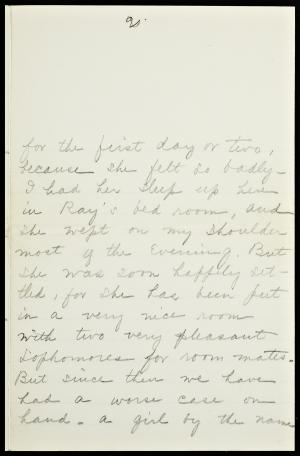 for the first day or two,
because she felt so badly –
I had her sleep up here
in Ray's bed room, and
she wept on my shoulder
most of the Evening. But
she was soon happily set-
tled, for she has been put
in a very nice room
with two very pleasant
Sophomores for room mates.
But since then we have
had a worse case on
hand – a girl by the name